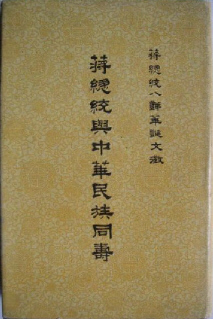 蔣總統八秩華誕文徵
蔣總統與中華民族同壽